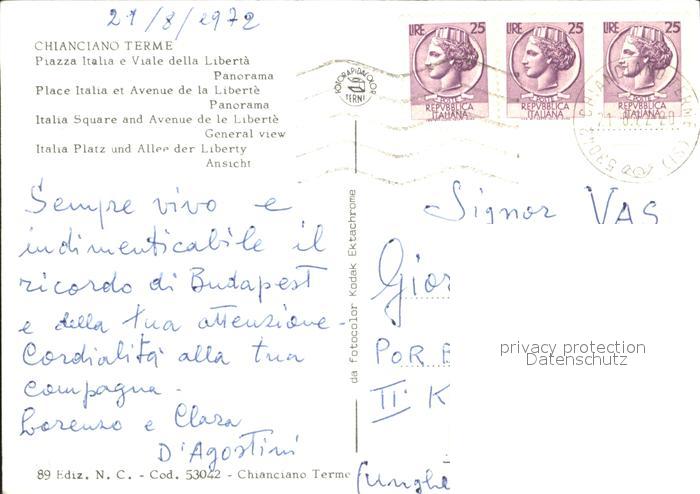 21/8/1972
CHIANCIANO TERME
Piazza Italia e Viale della Libertà
Panorama
Place Italia et Avenue de la Libertè
Panorama
Italia Square and Avenue de le Libertè
General view
Italia Platz und Allee der Liberty
Ansicht
FOTORAPIDACOLOR
TERNI
LIRE 25
POSTE
REPVBBLICA
ITALIANA
LIRE 25
POSTE
REPVBBLICA
ITALIANA
LIRE 25
REPVBBLICA
ITALIANA
53042
Sempre vivo e
indimenticabile il
ricordo di Budapest
e della tua attenzione.
Cordialità alla tua
compagna.
Lorenzo e Clara
D'Agostini
89 Ediz. N. C. - Cod. 53042 - Chianciano Terme
da fotocolor Kodak Ektachrome
Signor VAS
Gior
POR
II K
(Unghe
privacy protection
Datenschutz